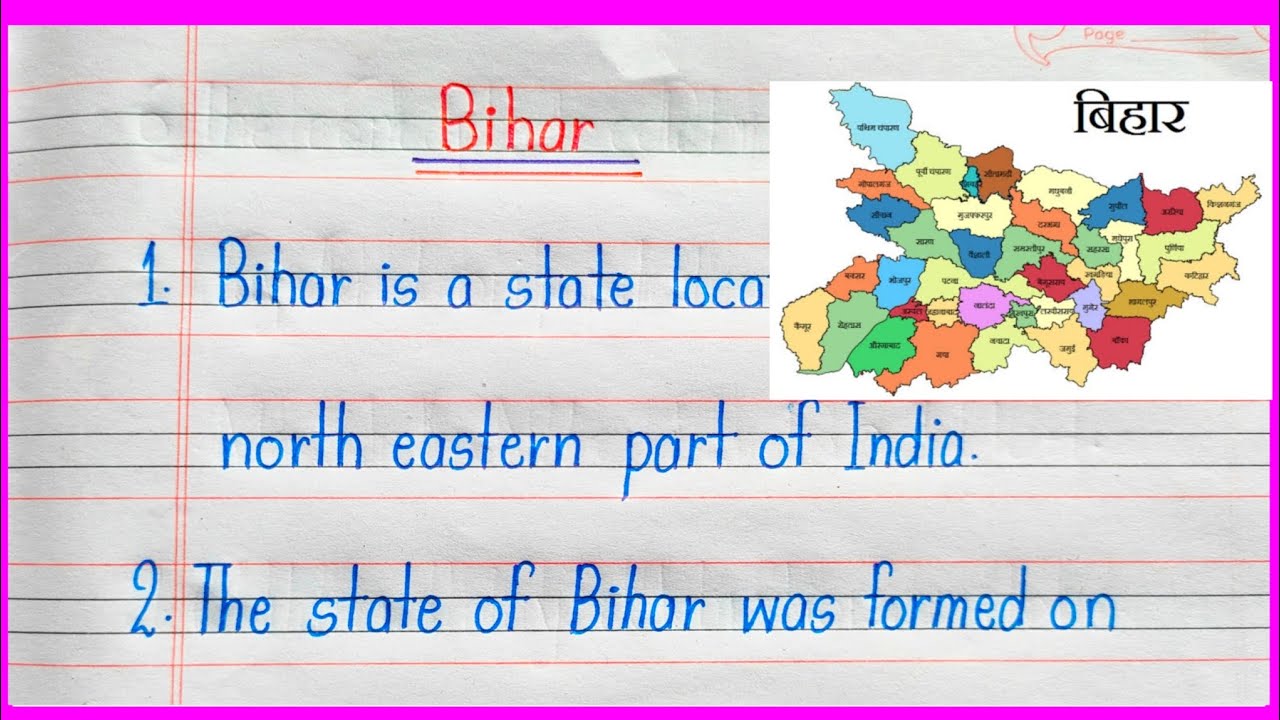 Page
Bihar
बिहार
1. Bihar is a state loca
north eastern part of India.
2. The state of Bihar was formed on
पश्चिम चंपारण
पूर्वी चंपारण
सीतामढ़ी
गोपालगंज
मधुबनी
सुपौल
अररिया
किशनगंज
मुजफ्फरपुर
दरभंगा
सारण
वैशाली
समस्तीपुर
सहरसा
मधेपुरा
पूर्णिया
बक्सर
भोजपुर
पटना
कटिहार
नालंदा
मुंगेर
भागलपुर
कैमूर
रोहतास
औरंगाबाद
गया
नवादा
जमुई
बाँका